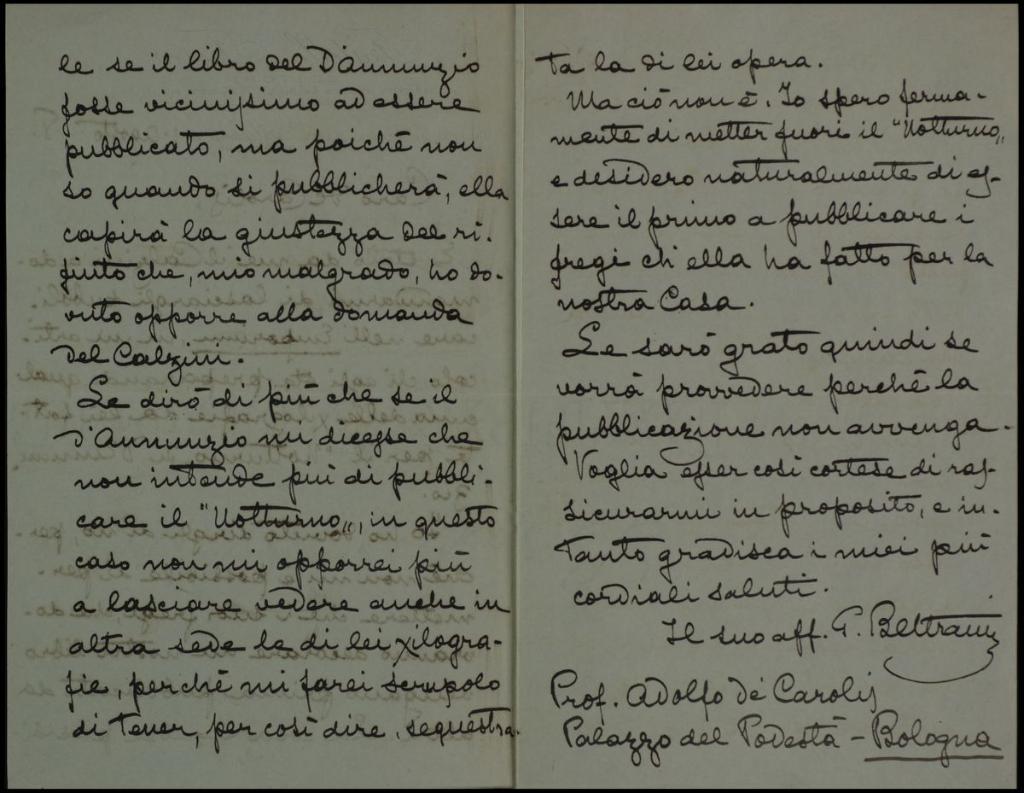 le se il libro del D'Annunzio
fosse vicinissimo ad essere
pubblicato, ma poichè non
so quando si pubblicherà, ella
capirà la giustezza del ri-
fiuto che, mio malgrado, ho do-
vuto opporre alla domanda
del Calzini.
Le dirò di più che se il
D'Annunzio mi dicesse che
non intende più di pubbli-
care il "Notturno„, in questo
caso non mi opporrei più
a lasciare vedere anche in
altra sede le di lei xilogra-
fie, perchè mi farei scrupolo
di tener, per così dire, sequestra-
ta la di lei opera.
Ma ciò non è. Io spero ferma-
mente di metter fuori il "Notturno„
e desidero naturalmente di es-
sere il primo a pubblicare i
fregi ch'ella ha fatto per la
nostra Casa.
Le sarò grato quindi se
vorrà provvedere perchè la
pubblicazione non avvenga.
Voglia esser così cortese di ras-
sicurarmi in proposito, e in-
tanto gradisca i miei più
cordiali saluti.
Il suo aff. G. Beltrami
Prof. Adolfo de Carolis
Palazzo del Podestà - Bologna